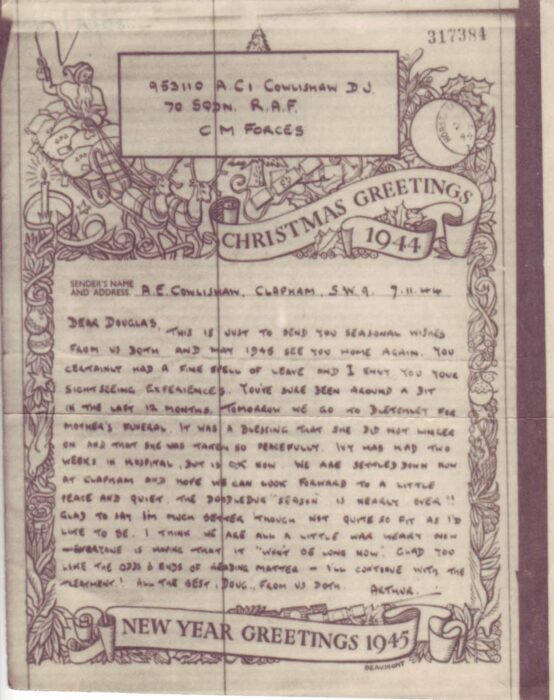 317384
953110 A.C.1 COWLISHAW D.J.
70 SQDN. R.A.F.
C M FORCES
CHRISTMAS GREETINGS
1944
SENDER'S NAME
AND ADDRESS A.E. COWLISHAW, CLAPHAM, S.W.9. 9.11.44
DEAR DOUGLAS, THIS IS JUST TO SEND YOU SEASONAL WISHES
FROM US BOTH AND MAY 1945 SEE YOU HOME AGAIN. YOU
CERTAINLY HAD A FINE SPELL OF LEAVE AND I ENVY YOU YOUR
SIGHTSEEING EXPERIENCES. YOU'VE SURE BEEN AROUND A BIT
IN THE LAST 12 MONTHS. TOMORROW WE GO TO BLETCHLEY FOR
MOTHER'S FUNERAL. IT WAS A BLESSING THAT SHE DID NOT LINGER
ON AND THAT SHE WAS TAKEN SO PEACEFULLY. IVY HAS HAD TWO
WEEKS IN HOSPITAL, BUT IS OK NOW. WE ARE SETTLED DOWN NOW
AT CLAPHAM AND HOPE WE CAN LOOK FORWARD TO A LITTLE
PEACE AND QUIET. THE DOODLEBUG "SEASON" IS NEARLY OVER!!
GLAD TO SAY I'M MUCH BETTER THOUGH NOT QUITE SO FIT AS I'D
LIKE TO BE. I THINK WE ARE ALL A LITTLE WAR WEARY NOW
- EVERYONE IS HOPING THAT IT "WON'T BE LONG NOW". GLAD YOU
LIKE THE ODDS & ENDS OF READING MATTER - I'LL CONTINUE WITH THE
TREATMENT! ALL THE BEST, DOUG., FROM US BOTH. ARTHUR.
NEW YEAR GREETINGS 1945
BEAUMONT